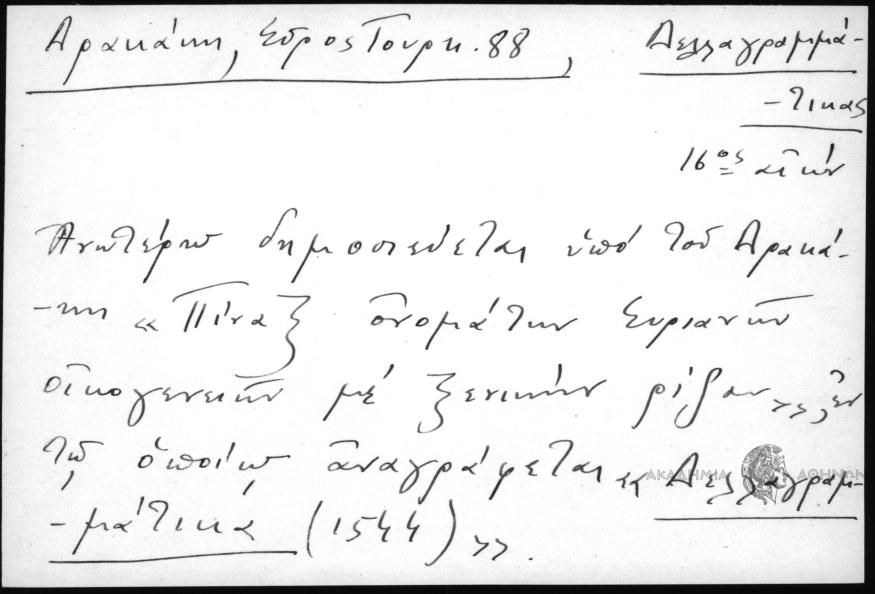 Δρακάκη, Σῦρος Τουρκ. 88, Δελλαγραμμά-
-τικας
16ος αἰών
Ἀνωτέρω δημοσιεύεται ὑπό τοῦ Δρακά-
-κη «Πίναξ ὀνομάτων Συριανῶν
οἰκογενειῶν μέ ξενικήν ρίζαν», ἐν
τῷ ὁποίῳ ἀναγράφεται «Δελλαγραμ-
-μάτικα (1544)».
ΑΚΑΔΗΜΙΑ ΑΘΗΝΩΝ